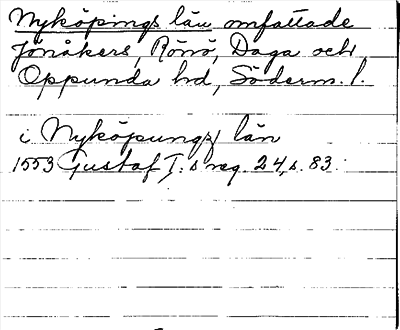 Nyköpings län omfattade
Jönåkers, Rönö, Daga och
Oppunda hd, Söderm. l.
i Nyköpungz län
1553 Gustaf I:s reg. 24, s. 83.